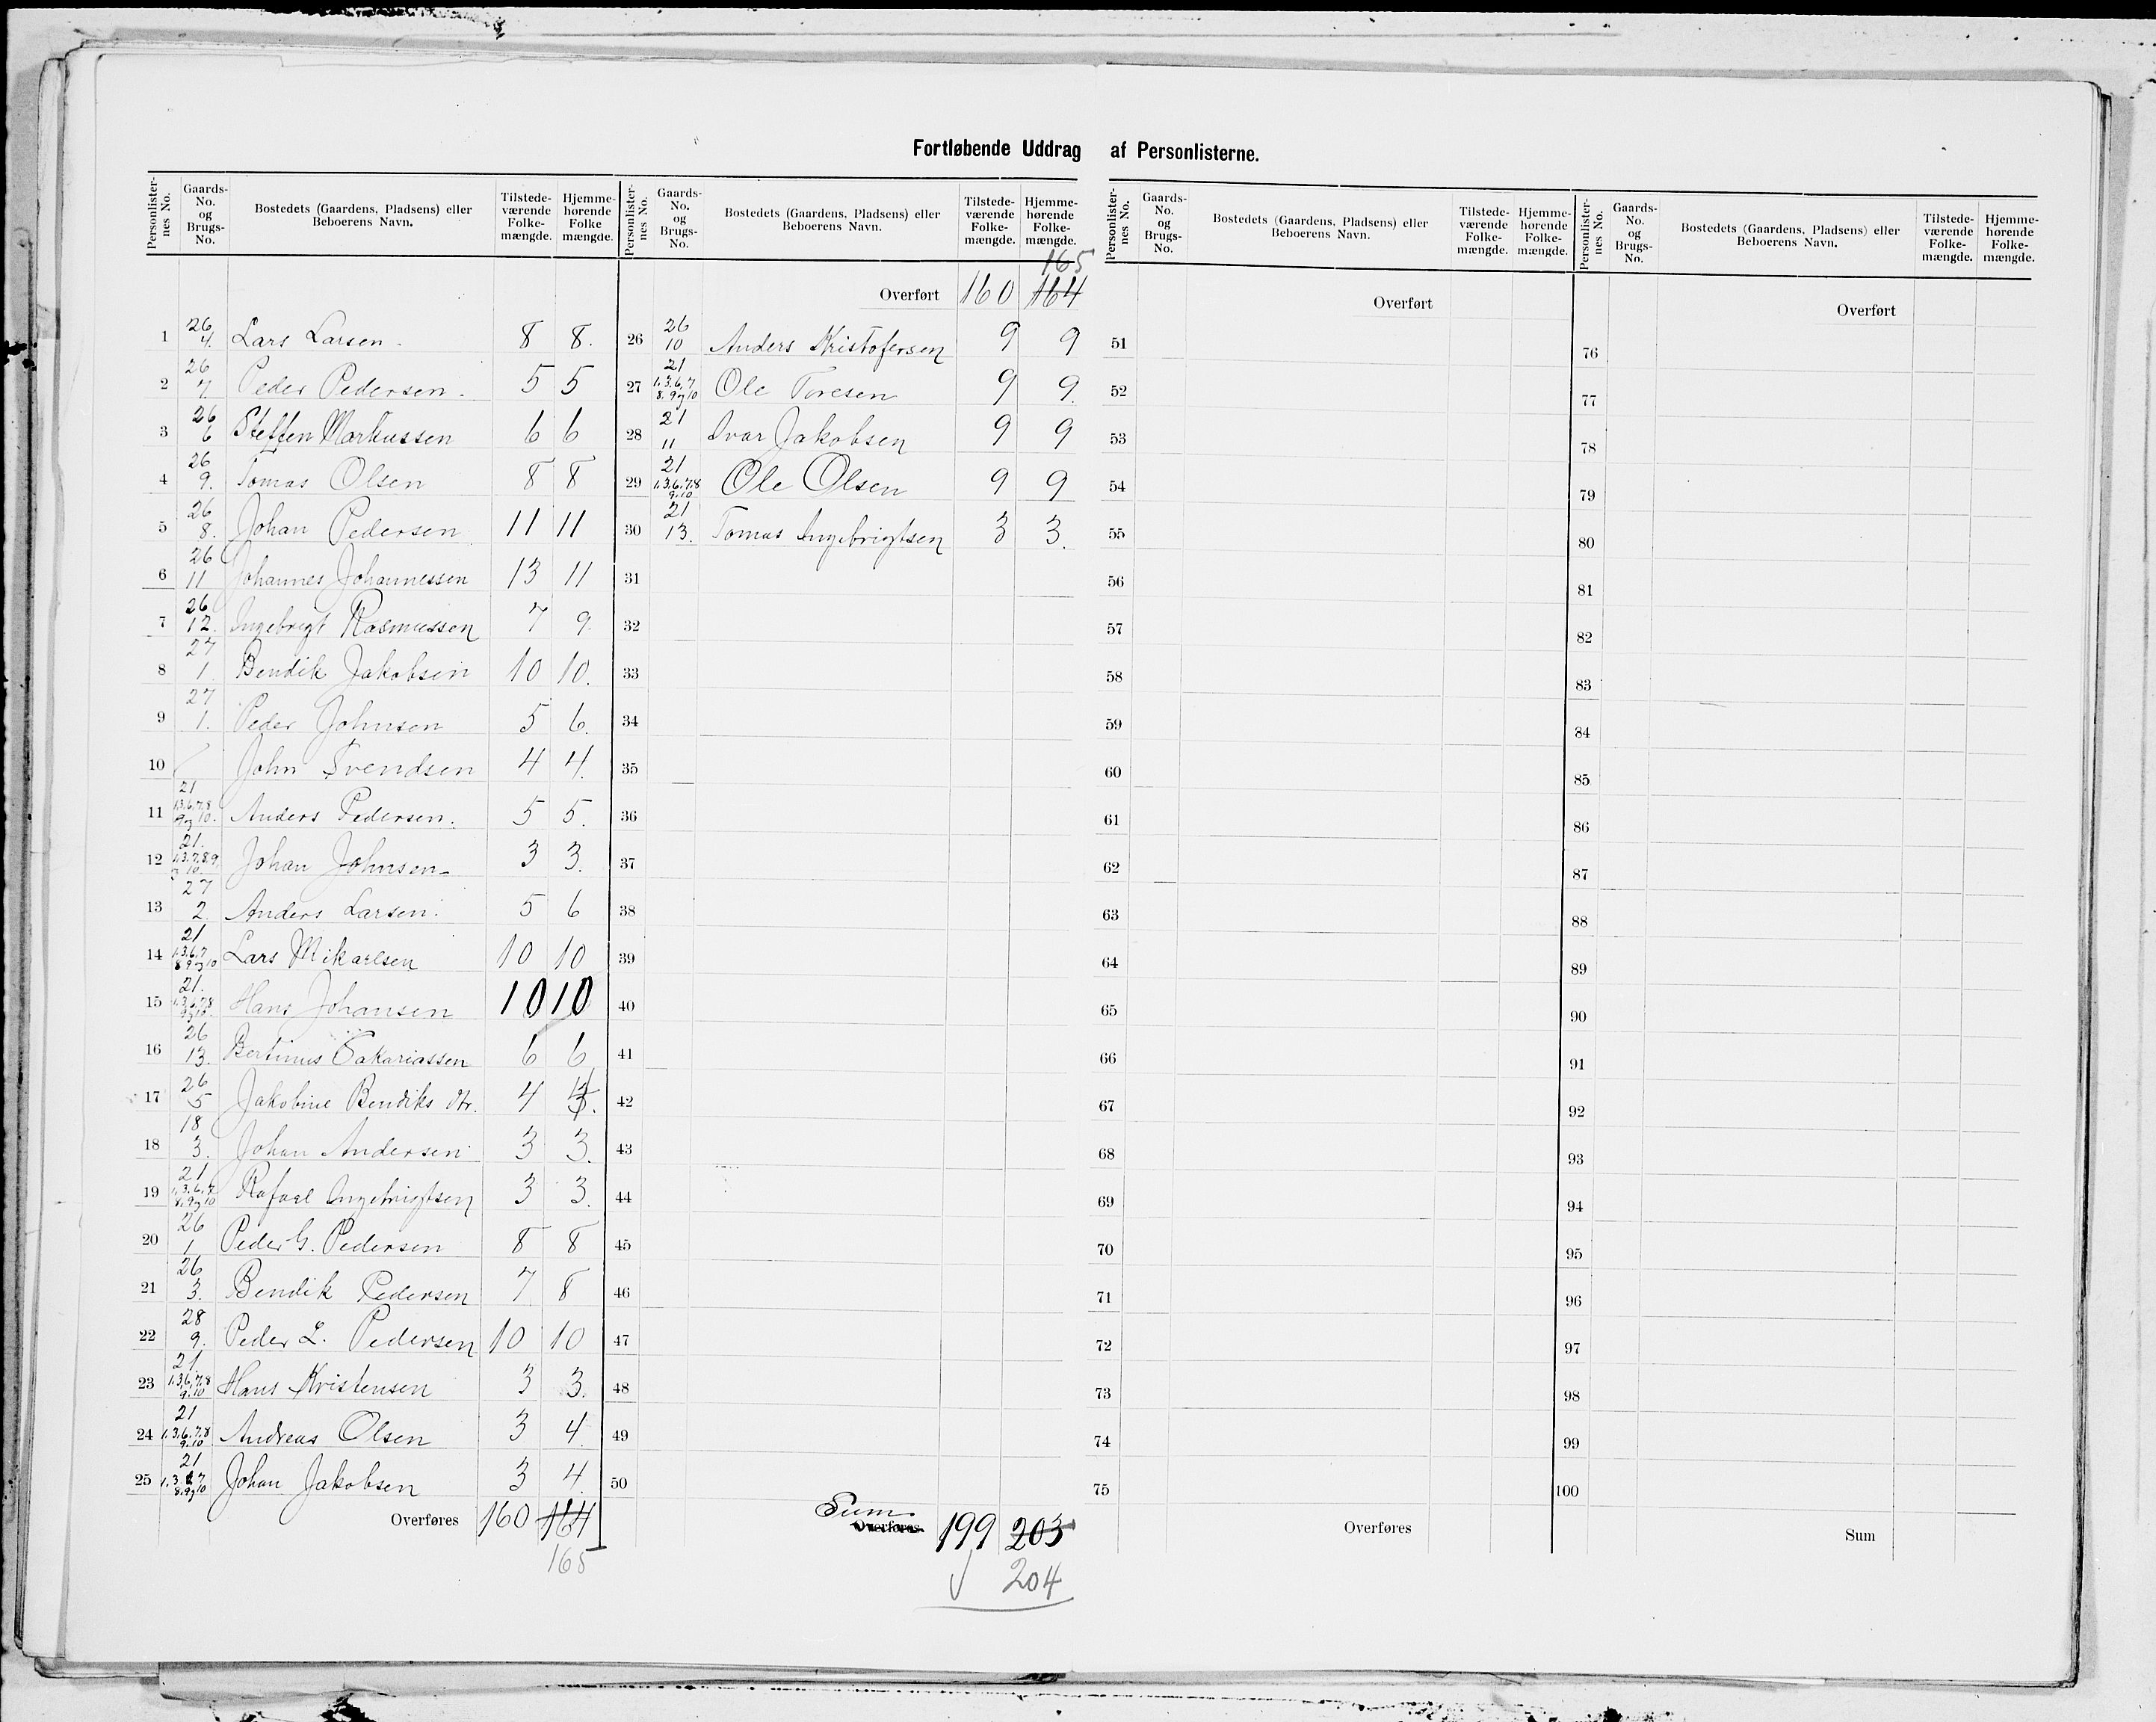 Fortløbende Uddrag af Personlisterne.
Personlister-nes No. Gaards-No. og Brugs-No. Bostedets (Gaardens, Pladsens) eller Beboerens Navn. Tilstede-værende Folke-mængde. Hjemme-hørende Folke mængde.
1 26 4. Lars Larsen. 8 8.
2 26 7. Peder Pedersen. 5 5
3 26 6 Steffen Markussen 6 6
4 26 9. Tomas Olsen 8 8
5 26 8. Johan Pedersen 11 11
6 26 11 Johannes Johannessen 13 11
7 26 12. Ingebrigt Rasmussen 7 9.
8 27 1. Bendik Jakobsen 10 10.
9 27 1. Peder Johnsen 5 6.
10 John Svendsen 4 4.
11 21 1.3.6.7.8 9 og 10. Anders Pedersen. 5 5.
12 21. 1.3.7.8.9. og 10. Johan Johnsen 3 3.
13 27 2. Anders Larsen. 5 6
14 21 1.3.6.7 8.9 og 10 Lars Mikaelsen 10 10
15 21. 1.3.6.7.8 9 og 10. Hans Johansen 10 10
16 26 13. Bertinus Sakariassen 6 6
17 26 5 Jakobine Bendiks dtr. 4 4
18 18 3. Johan Andersen 3 3.
19 21 1.3.6.7. 8.9 og 10 Rafael Ingebrigtsen 3 3.
20 26 1 Peder G. Pedersen 8 8
21 26 3. Bendik Pedersen 7 8
22 28 9. Peder L. Pedersen 10 10
23 21. 1.3.6.7.8 9.10 Hans Kristensen 3 3.
24 21 1.3.6.7.8 9.10 Andreas Olsen 3 4
25 21 1.3.6.7 8.9 og 10 Johan Jakobsen 3 4.
Overføres 160 164
165
Personlister-nes No. Gaards-No. og Brugs-No. Bostedets (Gaardens, Pladsens) eller Beboerens Navn. Tilstede-værende Folke-mængde. Hjemme-hørende Folke-mængde.
165
Overført 160 164
26 26 10 Anders Kristofersen 9 9
27 21 1.3.6.7. 8.9 og 10 Ole Toresen 9 9.
28 21 11 Ivar Jakobsen 9 9
29 21 1.3.6.7.8 9.10 Ole Olsen 9 9
30 21 13. Tomas Ingebrigtsen 3 3.
31
32
33
34
35
36
37
38
39
40
41
42
43
44
45
46
47
48
49
50
Sum
Overføres 199 203
204
Personlister-nes No. Gaards-No. og Brugs-No. Bostedets (Gaardens, Pladsens) eller Beboerens Navn. Tilstede-værende Folke-mængde. Hjemme-hørende Folke-mængde.
Overført
51
52
53
54
55
56
57
58
59
60
61
62
63
64
65
66
67
68
69
70
71
72
73
74
75
Overføres
Personlister-nes No. Gaards-No. og Brugs-No. Bostedets (Gaardens, Pladsens) eller Beboerens Navn. Tilstede-værende Folke-mængde. Hjemme-hørende Folke-mængde.
Overført
76
77
78
79
80
81
82
83
84
85
86
87
88
89
90
91
92
93
94
95
96
97
98
99
100
Sum